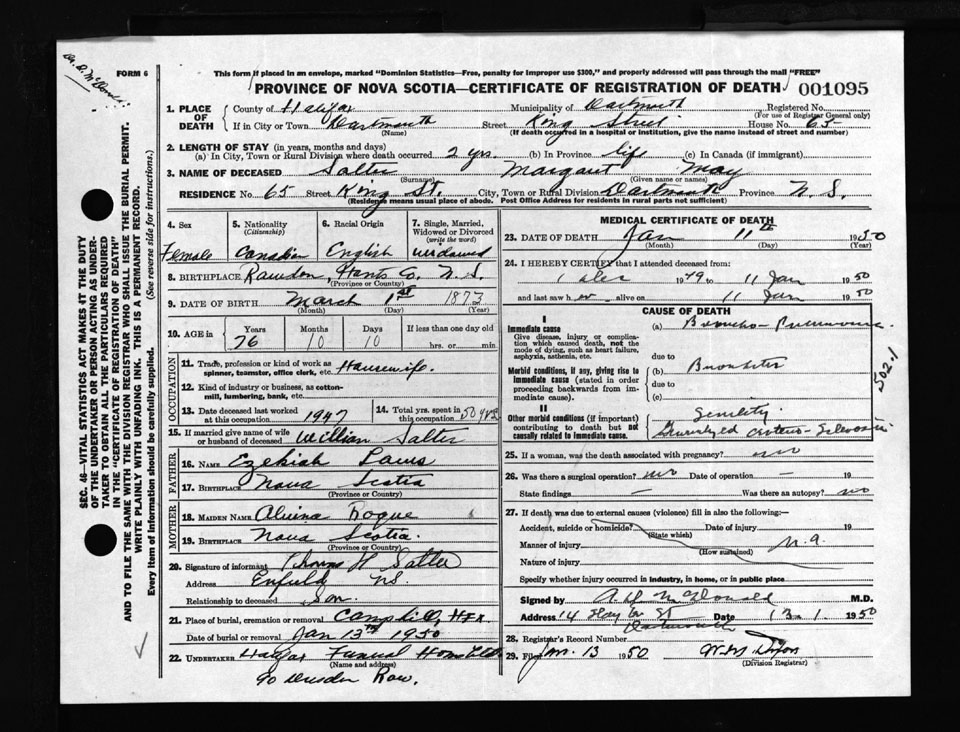 Dr. D. McDonald
FORM 6
This form if placed in an envelope, marked "Dominion Statistics—Free, penalty for improper use $300," and properly addressed will pass through the mail "FREE"
PROVINCE OF NOVA SCOTIA—CERTIFICATE OF REGISTRATION OF DEATH
001095
1. PLACE OF DEATH
County of Halifax Municipality of Dartmouth Registered No.
(For use of Registrar General only)
If in City or Town Dartmouth Street King Street House No. 65
(Name) (If death occurred in a hospital or institution, give the name instead of street and number)
2. LENGTH OF STAY (in years, months and days)
(a) In City, Town or Rural Division where death occurred 2 yrs. (b) In Province life (c) In Canada (if immigrant)
3. NAME OF DECEASED Salter Margaret May
(Surname) (Given name or names)
RESIDENCE No. 65 Street King St. City, Town or Rural Division Dartmouth Province N.S.
(Residence means usual place of abode. Post Office Address for residents in rural parts not sufficient)
4. Sex
Female
5. Nationality
(Citizenship)
Canadian
6. Racial Origin
English
7. Single, Married, Widowed or Divorced
(write the word)
widowed
8. BIRTHPLACE Rawdon, Hants Co. N.S.
(Province or Country)
9. DATE OF BIRTH March 1st 1873
(Month) (Day) (Year)
10. AGE in Years Months Days If less than one day old
76 10 10 hrs. or min.
OCCUPATION
11. Trade, profession or kind of work as spinner, teamster, office clerk, etc. Housewife.
12. Kind of industry or business, as cotton-mill, lumbering, bank, etc.
13. Date deceased last worked at this occupation 1947
14. Total yrs. spent in this occupation 50 yrs.
15. If married give name of wife or husband of deceased William Salter
FATHER
16. Name Ezekiah
17. Birthplace Nova Scotia
(Province or Country)
MOTHER
18. Maiden Name
19. Birthplace Nova Scotia.
(Province or Country)
20. Signature of informant Thomas H Salter
Address Enfield, N.S.
Relationship to deceased Son.
21. Place of burial, cremation or removal Camphill, Hfx.
Date of burial or removal Jan 13th 1950
22. UNDERTAKER Halifax Funeral Home Ltd.
(Name and address)
90 Dresden Row.
MEDICAL CERTIFICATE OF DEATH
23. DATE OF DEATH Jan 11th 1950
(Month) (Day) (Year)
24. I HEREBY CERTIFY that I attended deceased from:
1 Dec 1949 to 11 Jan 1950
and last saw her alive on 11 Jan 1950
CAUSE OF DEATH
I
Immediate cause
Give disease, injury or complication which caused death, not the mode of dying, such as heart failure, asphyxia, asthenia, etc.
(a) Broncho-Pneumonia
due to
Morbid conditions, if any, giving rise to immediate cause (stated in order proceeding backwards from immediate cause).
(b) Bronchitis
due to
(c)
II
Other morbid conditions (if important) contributing to death but not causally related to immediate cause.
Senility
Generalyzed arterio-sclerosis
502.1
25. If a woman, was the death associated with pregnancy? no
26. Was there a surgical operation? no Date of operation — 19
State findings — Was there an autopsy? no
27. If death was due to external causes (violence) fill in also the following:—
Accident, suicide or homicide? Date of injury 19
(State which)
Manner of injury n.a.
(How sustained)
Nature of injury
Specify whether injury occurred in industry, in home, or in public place
Signed by A. D. McDonald M.D.
Address 14 St Date 13.1 1950
Dartmouth
28. Registrar's Record Number
29. Filed Jan. 13 1950
(Division Registrar)
SEC. 46—VITAL STATISTICS ACT MAKES IT THE DUTY OF THE UNDERTAKER OR PERSON ACTING AS UNDERTAKER TO OBTAIN ALL THE PARTICULARS REQUIRED IN THE "CERTIFICATE OF REGISTRATION OF DEATH" AND TO FILE THE SAME WITH THE DIVISION REGISTRAR WHO SHALL ISSUE THE BURIAL PERMIT.
WRITE PLAINLY WITH UNFADING INK. THIS IS A PERMANENT RECORD.
Every item of information should be carefully supplied. (See reverse side for instructions.)